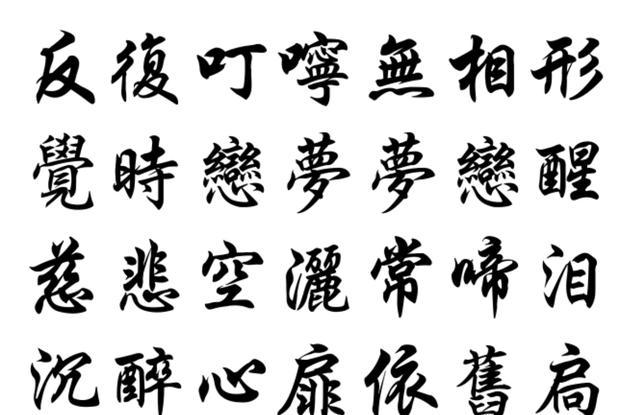 反復叮嚀無相形
覺時戀夢夢戀醒
慈悲空灑常啼泪
沉醉心扉依舊扃